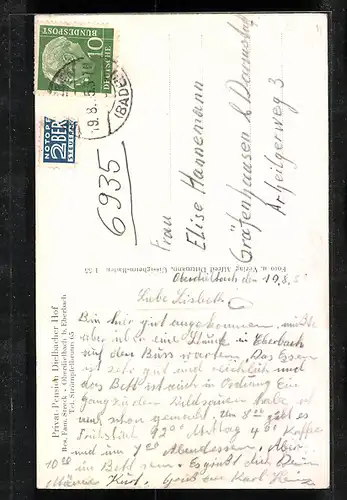 DEUTSCHE
BUNDESPOST
10
19.8.5
(BADEN)
NOTOPFER
2 BERLIN
STEUERMARKE
6935
Frau
Elise Hannemann
Gräfenhausen b Darmstadt
Arheilgerweg 3
Privat-Pension Dielbacher Hof
Bes. Fam. Steck · Oberdielbach b. Eberbach
Tel. Strümpfelbrunn 65
Foto u. Verlag Alfred Dittmann, Uissigheim-Baden 1/55
Oberdielbach den 19.8.5
Liebe Lisbeth
Bin hier gut angekommen, mußte
aber über eine Stunde in Eberbach
auf den Buss warten. Das Essen
ist sehr gut und reichlich und
das Bett ist auch in Ordnung Ein
Gang zu den Wildsauen habe ich
auch schon gemacht. Um 8 gibt es
Frühstück 12 00 Mittag 4 30 Kaffee
und um 7 Abendessen. Aber
10 im Bett sein. Es grüßt dich Dein
Männe Karl. Gruß an Karl Heinz